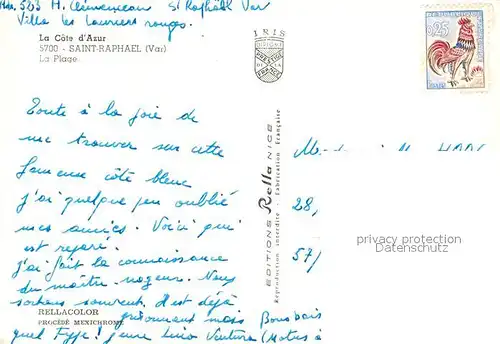 Villa les lauriers rouges.
St Raphaël Var
La Côte d'Azur
5700 - SAINT-RAPHAEL (Var)
La Plage
IRIS
0,25
Toute à la joie de
me trouver sur cette
fameuse côté bleue
j'ai quelque peu oublié
mes amies. Voici qui
est réparé.
j'ai fait la connaissance
du maître nageur. Nous
sortons souvent. Il est déjà
grisonnant mais
quel type! genre Lino Ventura
RELLACOLOR
PROCÉDÉ MEXICHROME
EDITIONS Rella NICE
Reproduction interdite - Fabrication Française
28,
57/
privacy protection
Datenschutz